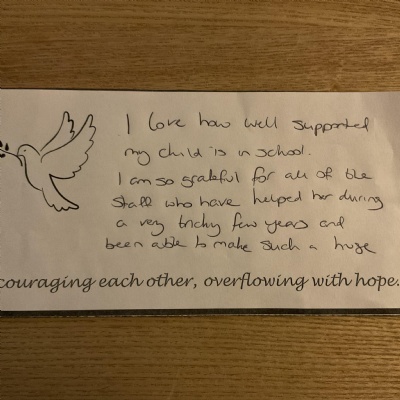 I love how well supported
my child is in school.
I am so grateful for all of the
staff who have helped her during
a very tricky few years and
been able to make such a huge
couraging each other, overflowing with hope.